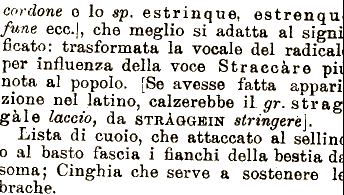 cordone o lo sp. estrinque, estrenqu
fune ecc.], che meglio si adatta al signi
ficato: trasformata la vocale del radical
per influenza della voce Straccàre piu
nota al popolo. [Se avesse fatta appari
zione nel latino, calzerebbe il gr. strag
gàle laccio, da STRÀGGEIN stringere].
Lista di cuoio, che attaccato al sellino
o al basto fascia i fianchi della bestia da
soma; Cinghia che serve a sostenere le
brache.